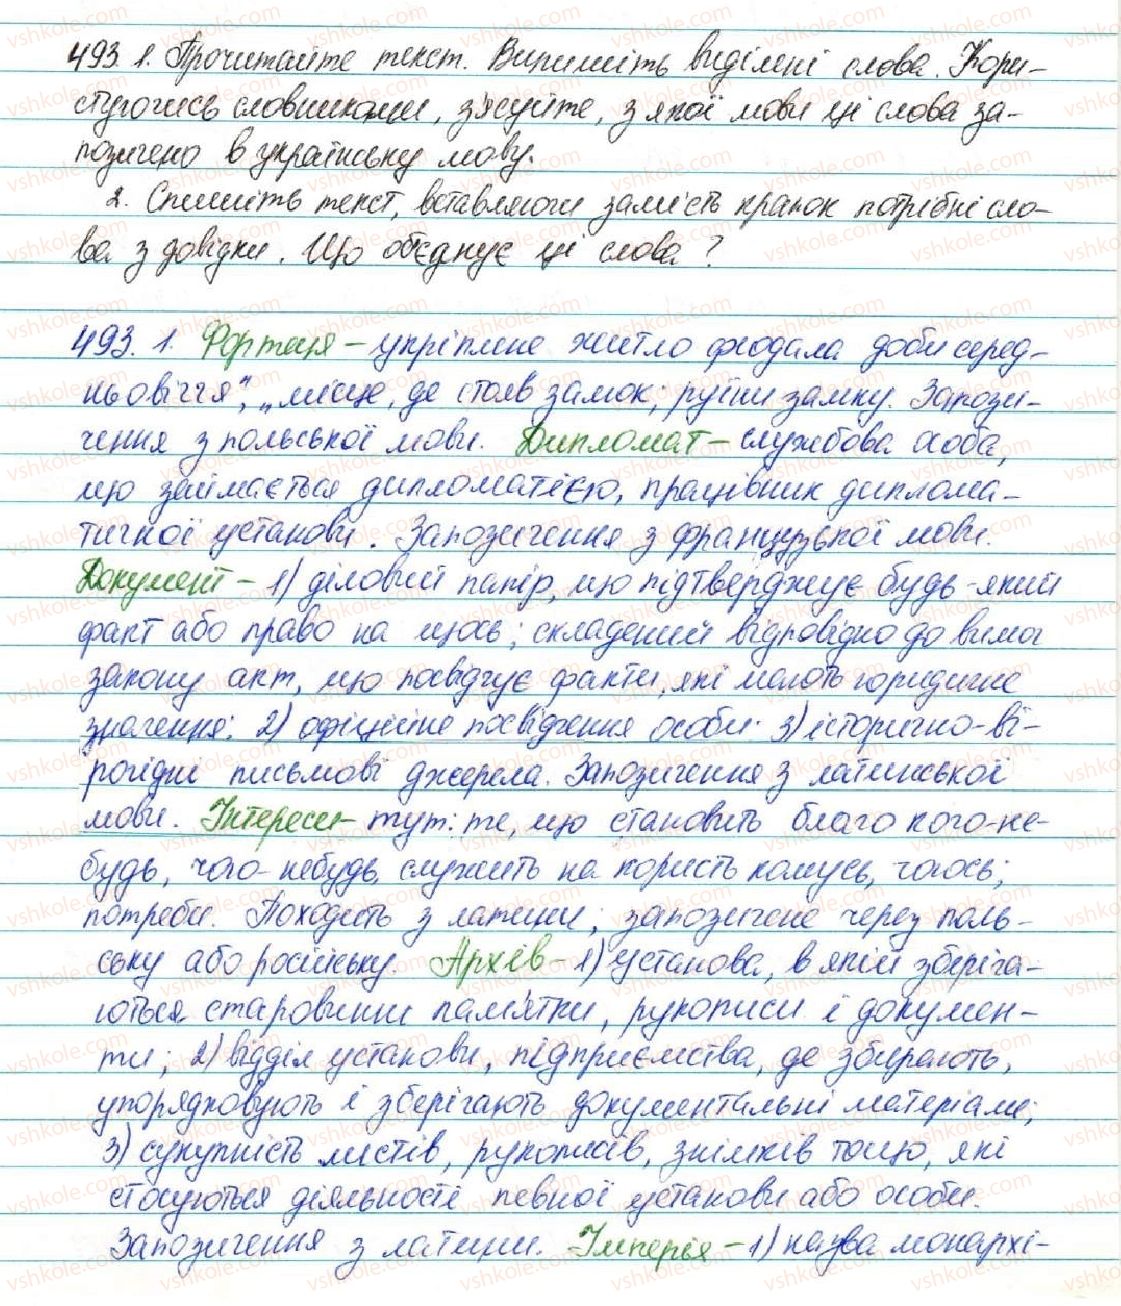 493. 1. Прочитайте текст. Випишіть виділені слова. Кори-
стуючись словниками, з'ясуйте, з якої мови ці слова за-
позичено в українську мову.
2. Спишіть текст, вставляючи замість крапок потрібні сло-
ва з довідки. Що об'єднує ці слова?
493. 1. Фортеця – укріплене житло феодала доби серед-
ньовіччя", „місце, де стояв замок; руїни замку. Запози-
чення з польської мови. Дипломат – службова особа,
що займається дипломатією, працівник диплома-
тичної установи. Запозичення з французької мови.
Документ – 1) діловий папір, що підтверджує будь-який
факт або право на щось; складений відповідно до вимог
закону акт, що посвідчує факти, які мають юридичне
значення; 2) офіційне посвідчення особи; 3) історично-ві-
рогідні письмові джерела. Запозичення з латинської
мови. Інтереси – тут: те, що становить благо кого-не-
будь, чого-небудь, служить на користь комусь, чомусь;
потреби. Походить з латини; запозичене через поль-
ську або російську. Архів – 1) установа, в якій зберіга-
ються старовинні пам'ятки, рукописи і докумен-
ти; 2) відділ установи, підприємства, де збирають,
упорядковують і зберігають документальні матеріали;
3) сукупність листів, рукописів, знімків тощо, які
стосуються діяльності певної установи або особи.
Запозичення з латини. Імперія – 1) назва монархі-